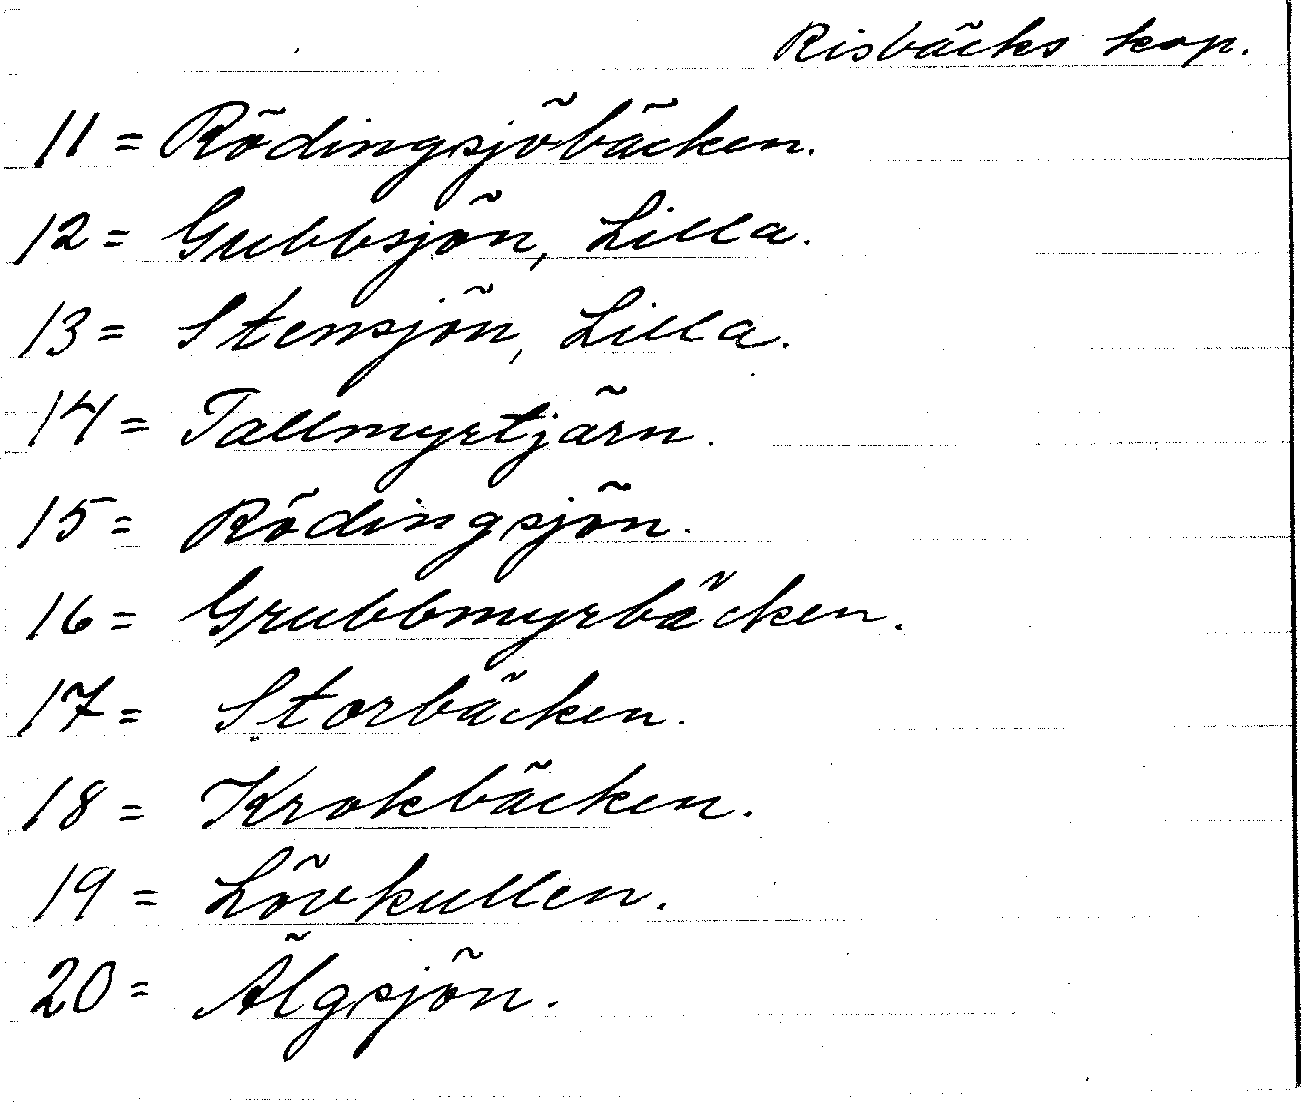 Risbäcks kap.
11 = Rödingsjöbäcken.
12 = Gubbsjön, Lilla.
13 = Stensjön, Lilla.
14 = Tallmyrtjärn.
15 = Rödingsjön.
16 = Grubbmyrbäcken.
17 = Storbäcken.
18 = Krokbäcken.
19 = Lövkullen.
20 = Älgsjön.